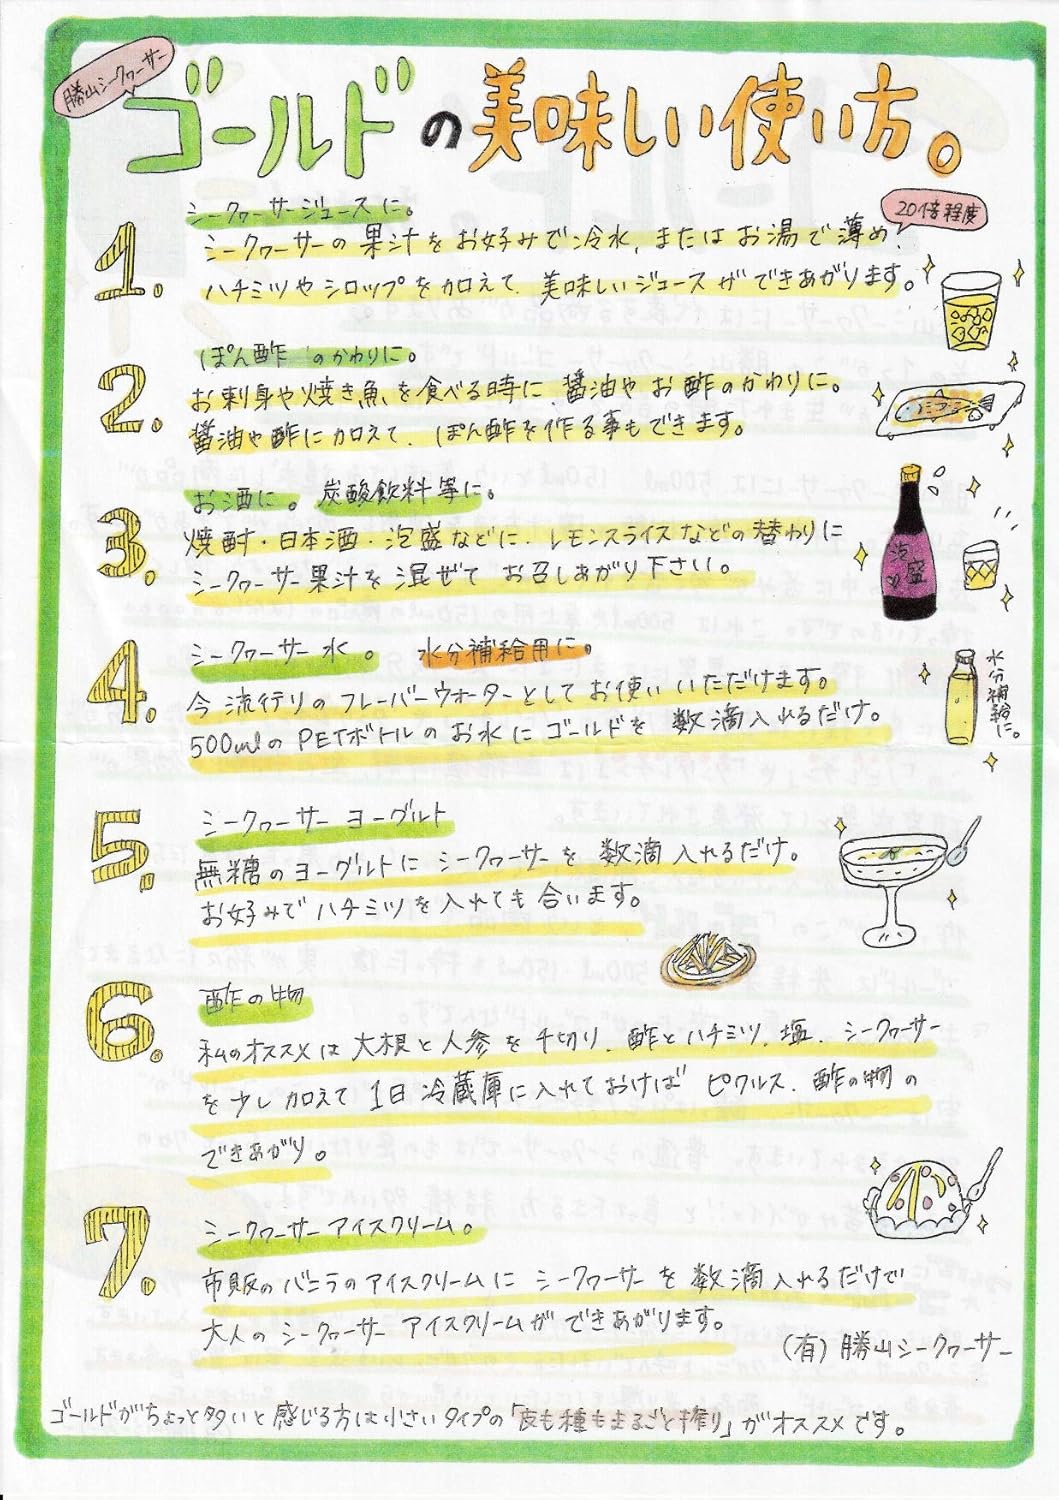 勝山シークヮーサー
ゴールドの美味しい使い方。
1. シークヮーサージュースに。
20倍程度
シークヮーサーの果汁をお好みで冷水、またはお湯で薄め、
ハチミツやシロップを加えて、美味しいジュースができあがります。
2. ぽん酢のかわりに。
お刺身や焼き魚を食べる時に、醤油やお酢のかわりに。
醤油や酢に加えて、ぽん酢を作る事もできます。
3. お酒に。炭酸飲料等に。
焼酎・日本酒・泡盛などに、レモンスライスなどの替わりに
シークヮーサー果汁を混ぜてお召しあがり下さい。
泡盛
4. シークヮーサー水。 水分補給用に。
今流行りのフレーバーウォーターとしてお使いいただけます。
500mlのPETボトルのお水にゴールドを数滴入れるだけ。
水分補給に。
5. シークヮーサーヨーグルト
無糖のヨーグルトにシークヮーサーを数滴入れるだけ。
お好みでハチミツを入れても合います。
6. 酢の物
私のオススメは大根と人参を千切り、酢とハチミツ、塩、シークヮーサー
を少し加えて1日冷蔵庫に入れておけばピクルス、酢の物の
できあがり。
7. シークヮーサーアイスクリーム。
市販のバニラのアイスクリームにシークヮーサーを数滴入れるだけで
大人のシークヮーサーアイスクリームができあがります。
(有)勝山シークヮーサー
ゴールドがちょっと多いと感じる方は小さいタイプの「皮も種もまるごと搾り」がオススメです。